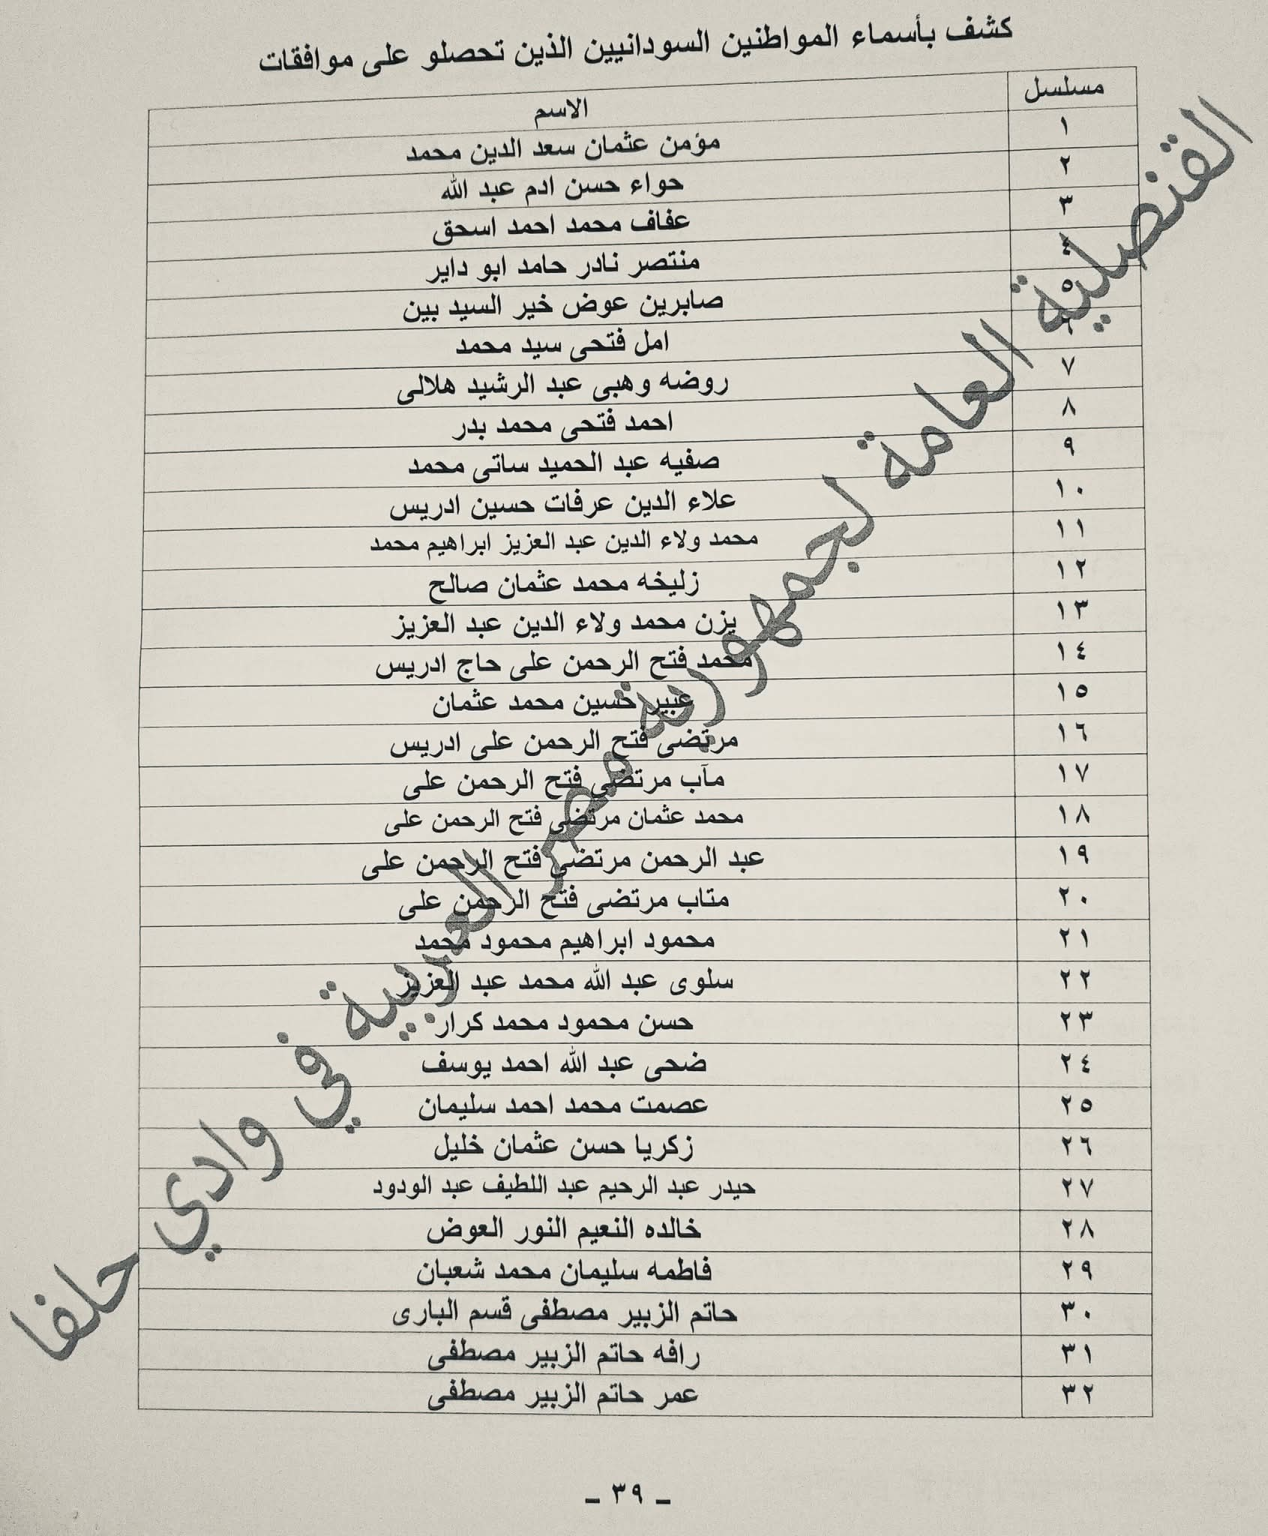 كشف بأسماء المواطنين السودانيين الذين تحصلو على موافقات
مسلسل الاسم
١ مؤمن عثمان سعد الدين محمد
٢ حواء حسن ادم عبد الله
٣ عفاف محمد احمد اسحق
٤ منتصر نادر حامد ابو داير
٥ صابرين عوض خير السيد بين
٦ امل فتحى سيد محمد
٧ روضه وهبى عبد الرشيد هلالى
٨ احمد فتحى محمد بدر
٩ صفيه عبد الحميد ساتى محمد
١٠ علاء الدين عرفات حسين ادريس
١١ محمد ولاء الدين عبد العزيز ابراهيم محمد
١٢ زليخه محمد عثمان صالح
١٣ يزن محمد ولاء الدين عبد العزيز
١٤ محمد فتح الرحمن على حاج ادريس
١٥ عبير حسين محمد عثمان
١٦ مرتضى فتح الرحمن على ادريس
١٧ مآب مرتضى فتح الرحمن على
١٨ محمد عثمان مرتضى فتح الرحمن على
١٩ عبد الرحمن مرتضى فتح الرحمن على
٢٠ متاب مرتضى فتح الرحمن على
٢١ محمود ابراهيم محمود محمد
٢٢ سلوى عبد الله محمد عبد العزيز
٢٣ حسن محمود محمد كرار
٢٤ ضحى عبد الله احمد يوسف
٢٥ عصمت محمد احمد سليمان
٢٦ زكريا حسن عثمان خليل
٢٧ حيدر عبد الرحيم عبد اللطيف عبد الودود
٢٨ خالده النعيم النور العوض
٢٩ فاطمه سليمان محمد شعبان
٣٠ حاتم الزبير مصطفى قسم البارى
٣١ رافه حاتم الزبير مصطفى
٣٢ عمر حاتم الزبير مصطفى
القنصلية العامة لجمهورية مصر العربية في وادي حلفا
- ٣٩ -